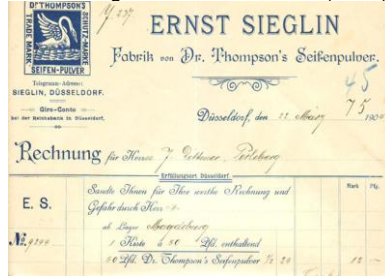 DR THOMPSON'S
TRADE MARK
SCHUTZ-MARKE
SEIFEN-PULVER
Telegramm-Adresse:
SIEGLIN, DÜSSELDORF.
Giro-Conto
bei der Reichsbank in Düsseldorf.
ERNST SIEGLIN
Fabrik von Dr. Thompson's Seifenpulver.
45
Düsseldorf, den 12 März 190
75
Rechnung für Herrn J. Perleberg
Erfüllungsort Düsseldorf.
Mark Pfg.
E. S.
Sandte Ihnen für Ihre werthe Rechnung und
Gefahr durch Herrn
ab Lager Magdeburg
№ 9244
1 Kiste à 50 Pfd. enthaltend
50 Pfd. Dr. Thompson's Seifenpulver 12 —